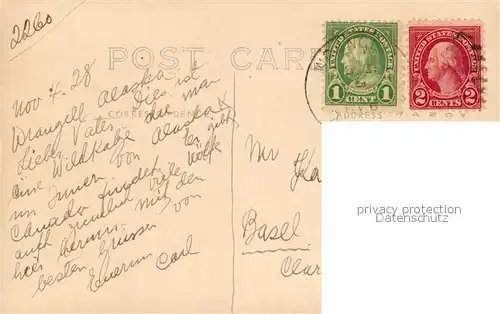 2260
POST CARD
UNITED STATES POSTAGE
1 CENT 1
UNITED STATES POSTAGE
2 CENTS 2
CORRESPONDENCE
ADDRESS
Nov 4. 28
Wrangell Alaska
Lieber Vater Dies ist
eine Wildkatze die man
im Innern von Alaska
Canada findet. Es gibt
auch ziemlich viele Wölfe
hier herum. mit den
besten Grüssen von
Euerm Carl
Mr
Basel
privacy protection
www.oldthing.net